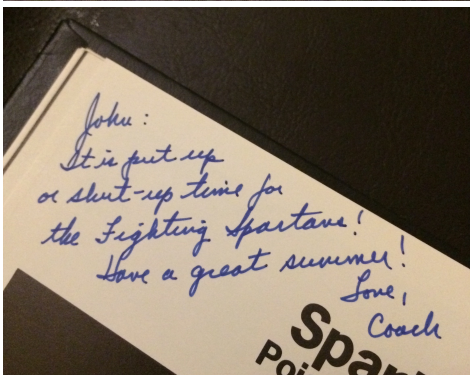 John:
It is put up
or shut-up time for
the Fighting Spartans!
Have a great summer!
Love,
Coach
Spar
Poi